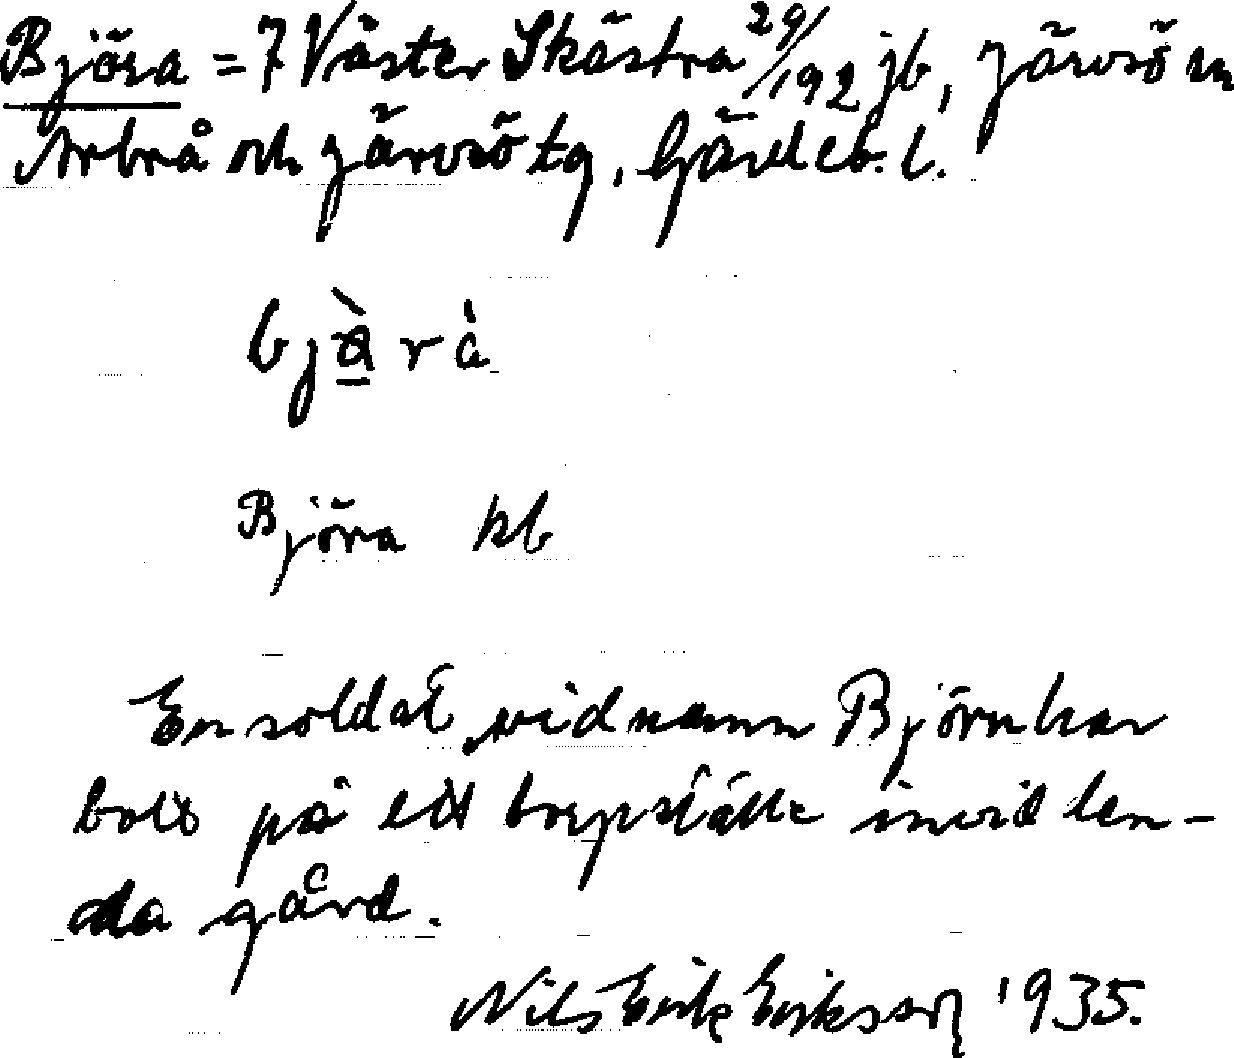 Björa = 7 Väster Skästra 29/192 jb, Järvsö sn
Arbrå och Järvsö tg, Gävleb. l.
bjạ̀rà
Björa kb
En soldat vid namn Björn har
bott på ett torpställe invid den-
da gård.
Nils Erik Eriksson 1935.